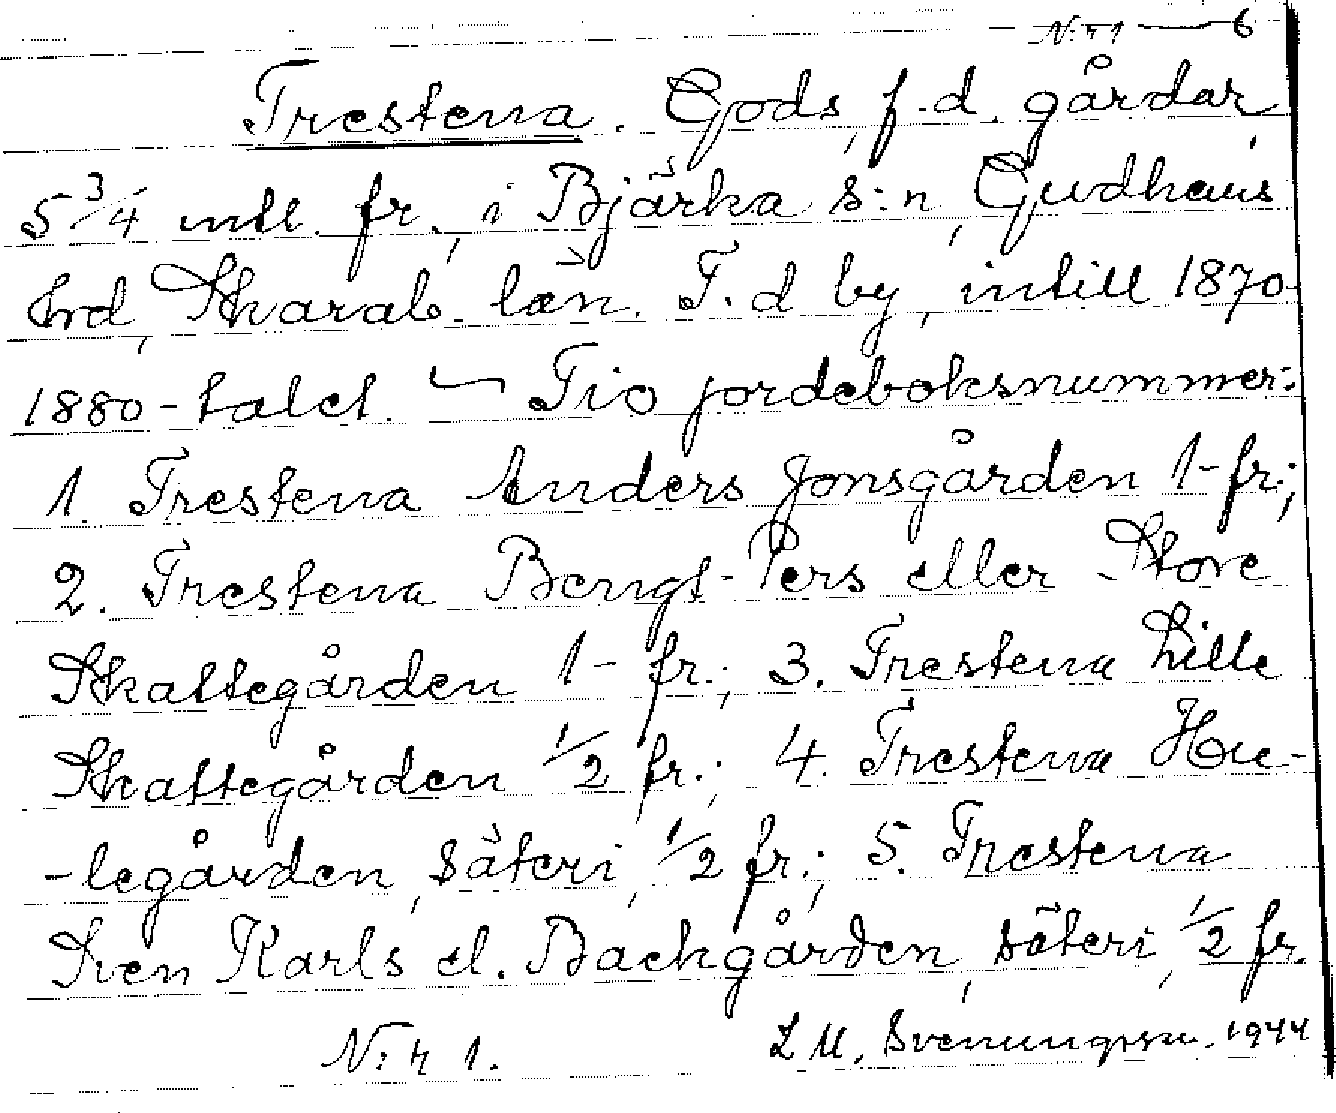 N:r 1 — 6
Trestena. Gods, f.d. gårdar,
5 3/4 mtl. fr., i Bjärka s:n, Gudhems
hrd, Skarab. län. F.d by, intill 1870-
1880-talet. — Tio jordeboksnummer:
1. Trestena Anders Jonsgården 1- fr.;
2. Trestena Bengt-Pers eller Store
Skattegården 1- fr.; 3. Trestena Lille
Skattegården 1/2 fr.; 4. Trestena Hu-
-legården, säteri, 1/2 fr.; 5. Trestena
Sven Karls el. Backgården, säteri, 1/2 fr.
N:r 1. L M. Svenungsson. 1944